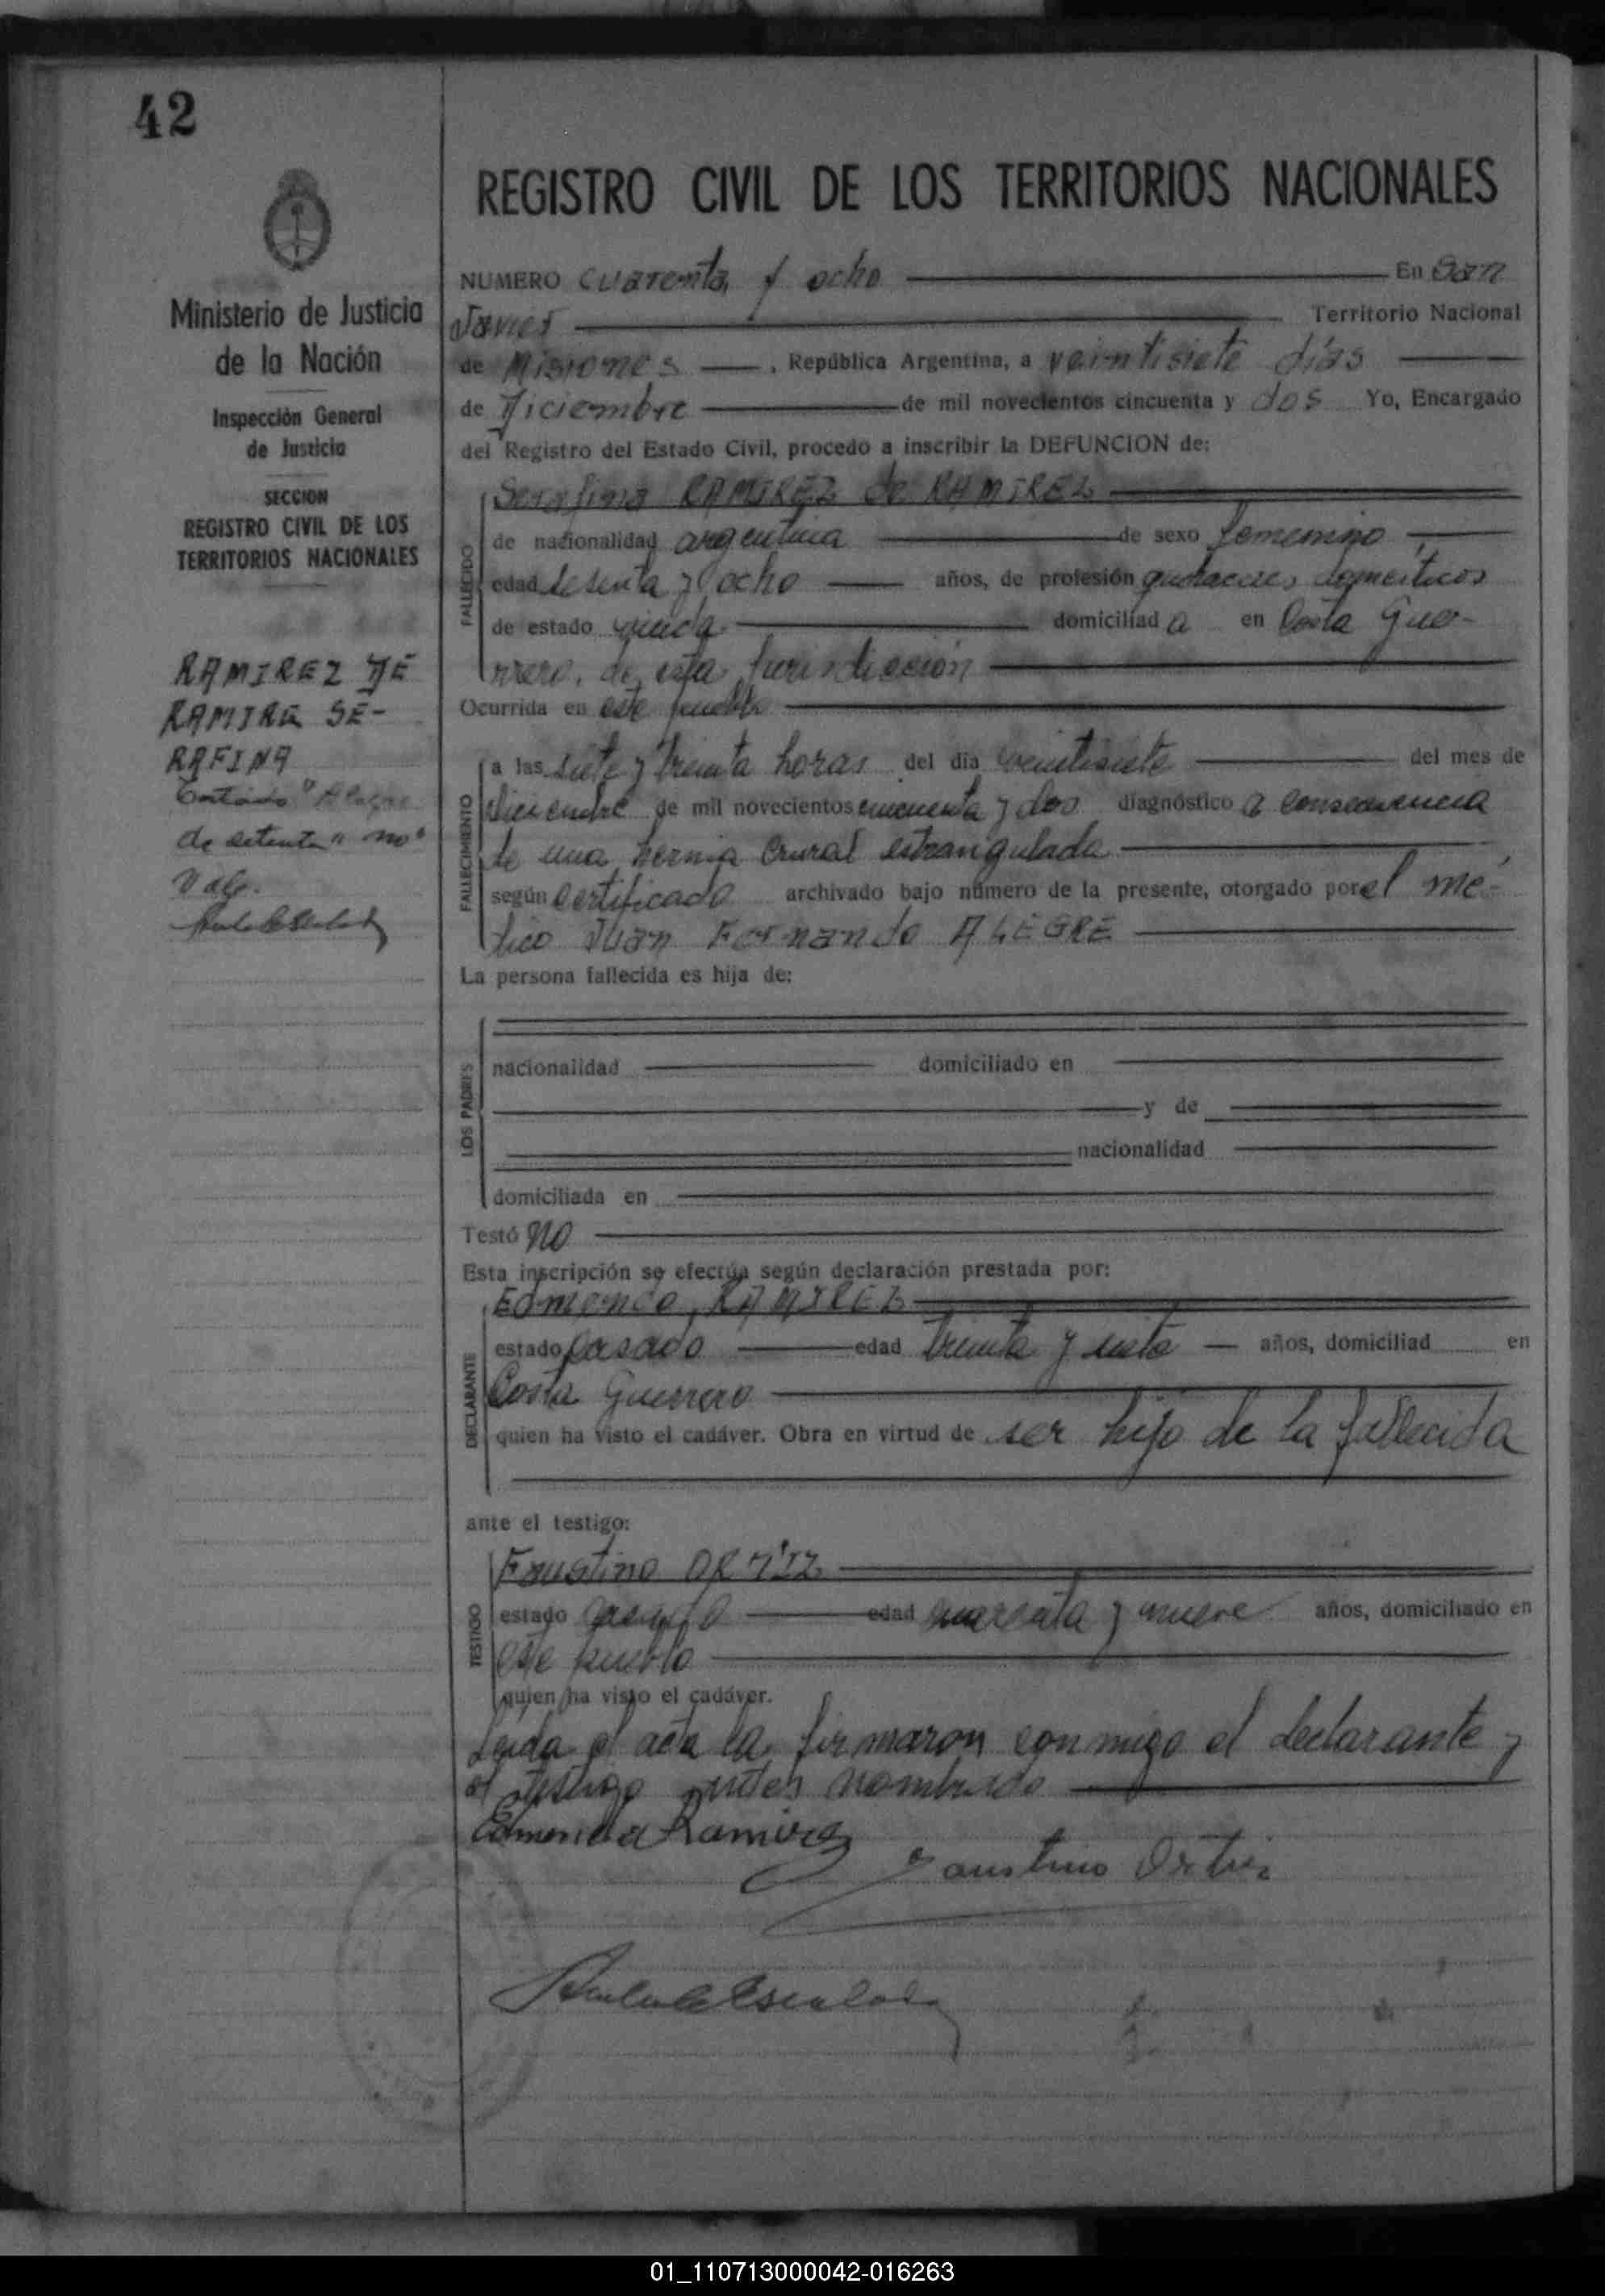 42
Ministerio de Justicia
de la Nación
Inspección General
de Justicia
SECCION
REGISTRO CIVIL DE LOS
TERRITORIOS NACIONALES
RAMIREZ DE
RAMIRE SE-
RAFINA
Testado
de setenta" no
vale.
REGISTRO CIVIL DE LOS TERRITORIOS NACIONALES
NUMERO cuarenta y ocho En San
Javier Territorio Nacional
de Misiones , República Argentina, a veintisiete días
de Diciembre de mil novecientos cincuenta y dos Yo, Encargado
del Registro del Estado Civil, procedo a inscribir la DEFUNCION de:
Serafina RAMIREZ de RAMIREZ
FALLECIDO
de nacionalidad argentina de sexo femenino
edad sesenta y ocho años, de profesión quehaceres domésticos
de estado viuda domiciliad a en Costa Gue-
rrero, de esta Jurisdicción
Ocurrida en este pueblo
FALLECIMIENTO
a las siete y treinta horas del día veintisiete del mes de
diciembre de mil novecientos cincuenta y dos diagnóstico a consecuencia
de una hernia crural estrangulada
según certificado archivado bajo número de la presente, otorgado por el mé-
dico Juan Fernando ALEGRE
La persona fallecida es hija de:
LOS PADRES
nacionalidad domiciliado en
y de
nacionalidad
domiciliada en
Testó no
Esta inscripción se efectúa según declaración prestada por:
Edmundo RAMIREZ
DECLARANTE
estado casado edad treinta y siete años, domiciliad en
Costa Guerrero
quien ha visto el cadáver. Obra en virtud de ser hijo de la fallecida
ante el testigo:
Faustino ORTIZ
TESTIGO
estado casado edad cuarenta y nueve años, domiciliado en
este pueblo
quien ha visto el cadáver.
Leída el acta la firmaron conmigo el declarante y
el testigo antes nombrado
Ramirez
Faustino Ortiz
01_110713000042-016263